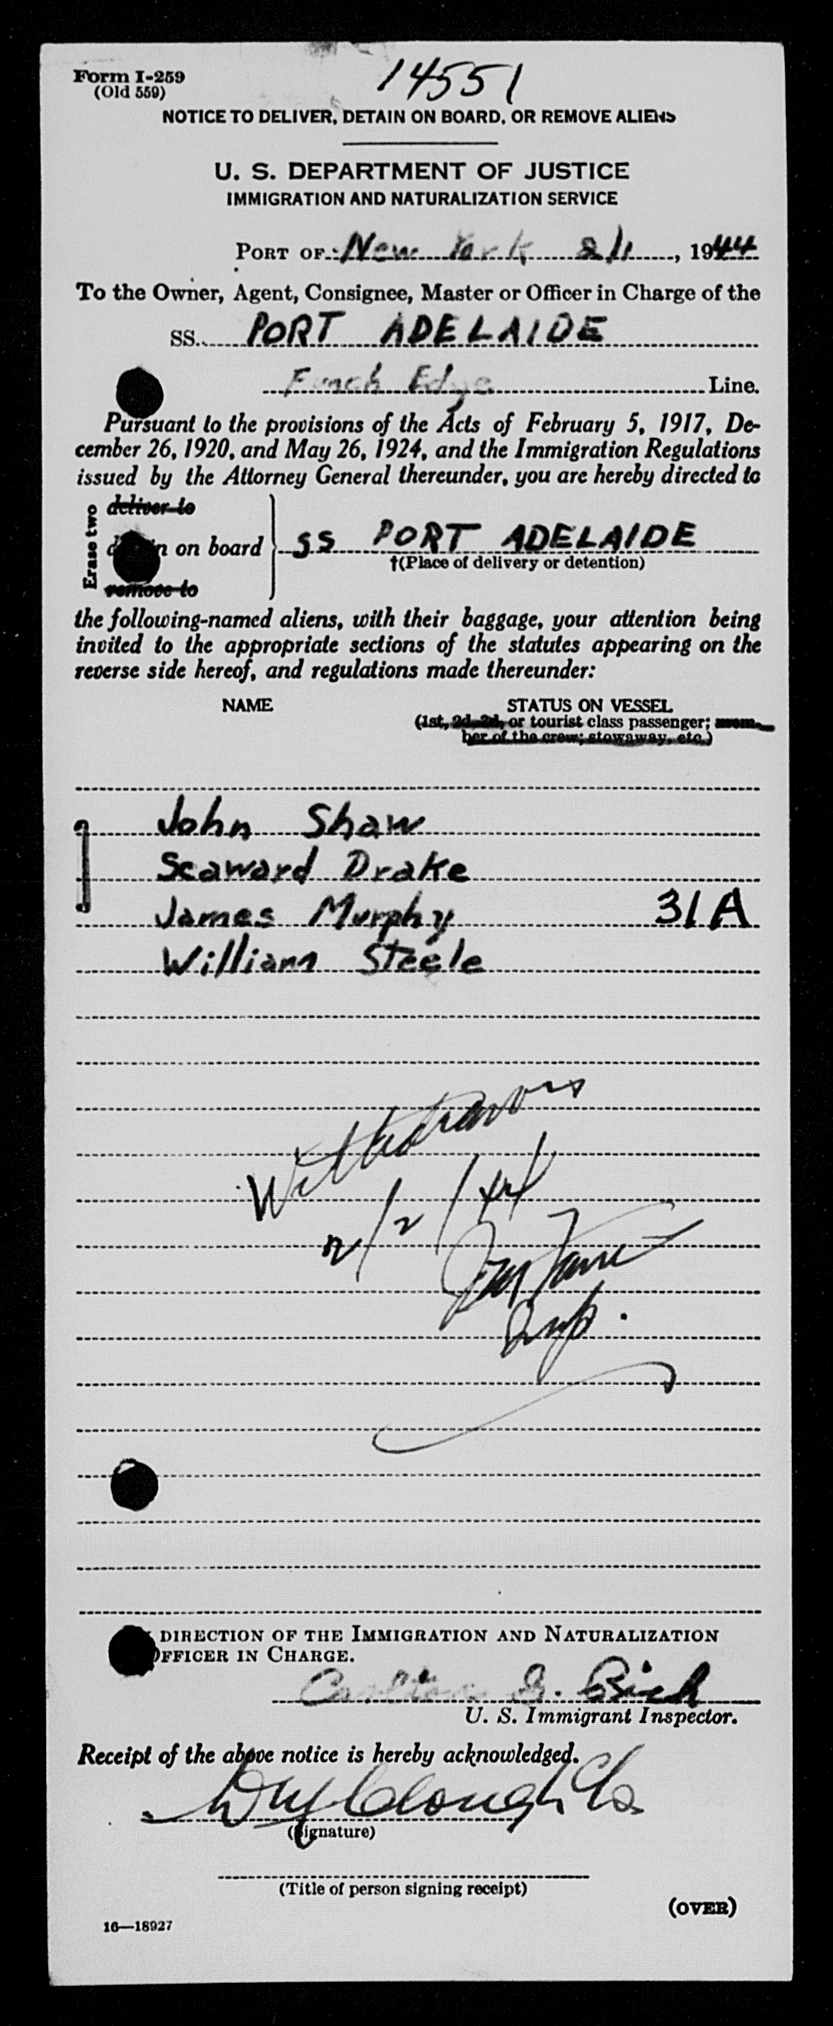 Form I-259
(Old 559)
14551
NOTICE TO DELIVER, DETAIN ON BOARD, OR REMOVE ALIENS
U. S. DEPARTMENT OF JUSTICE
IMMIGRATION AND NATURALIZATION SERVICE
PORT OF New York 2/1, 1944
To the Owner, Agent, Consignee, Master or Officer in Charge of the
SS. PORT ADELAIDE
Funch Edye Line.
Pursuant to the provisions of the Acts of February 5, 1917, De-
cember 26, 1920, and May 26, 1924, and the Immigration Regulations
issued by the Attorney General thereunder, you are hereby directed to
Erase two
deliver to
on board SS PORT ADELAIDE
†(Place of delivery or detention)
remove to
the following-named aliens, with their baggage, your attention being
invited to the appropriate sections of the statutes appearing on the
reverse side hereof, and regulations made thereunder:
NAME STATUS ON VESSEL
(1st, 2d, 3d, or tourist class passenger; mem-
ber of the crew; stowaway, etc.)
John Shaw
Seaward Drake
James Murphy 31A
William Steele
Withdrawn
2/2/44
Insp.
DIRECTION OF THE IMMIGRATION AND NATURALIZATION
OFFICER IN CHARGE.
Carlton G. Bich
U. S. Immigrant Inspector.
Receipt of the above notice is hereby acknowledged.
(Signature)
(Title of person signing receipt)
(OVER)
16—18927